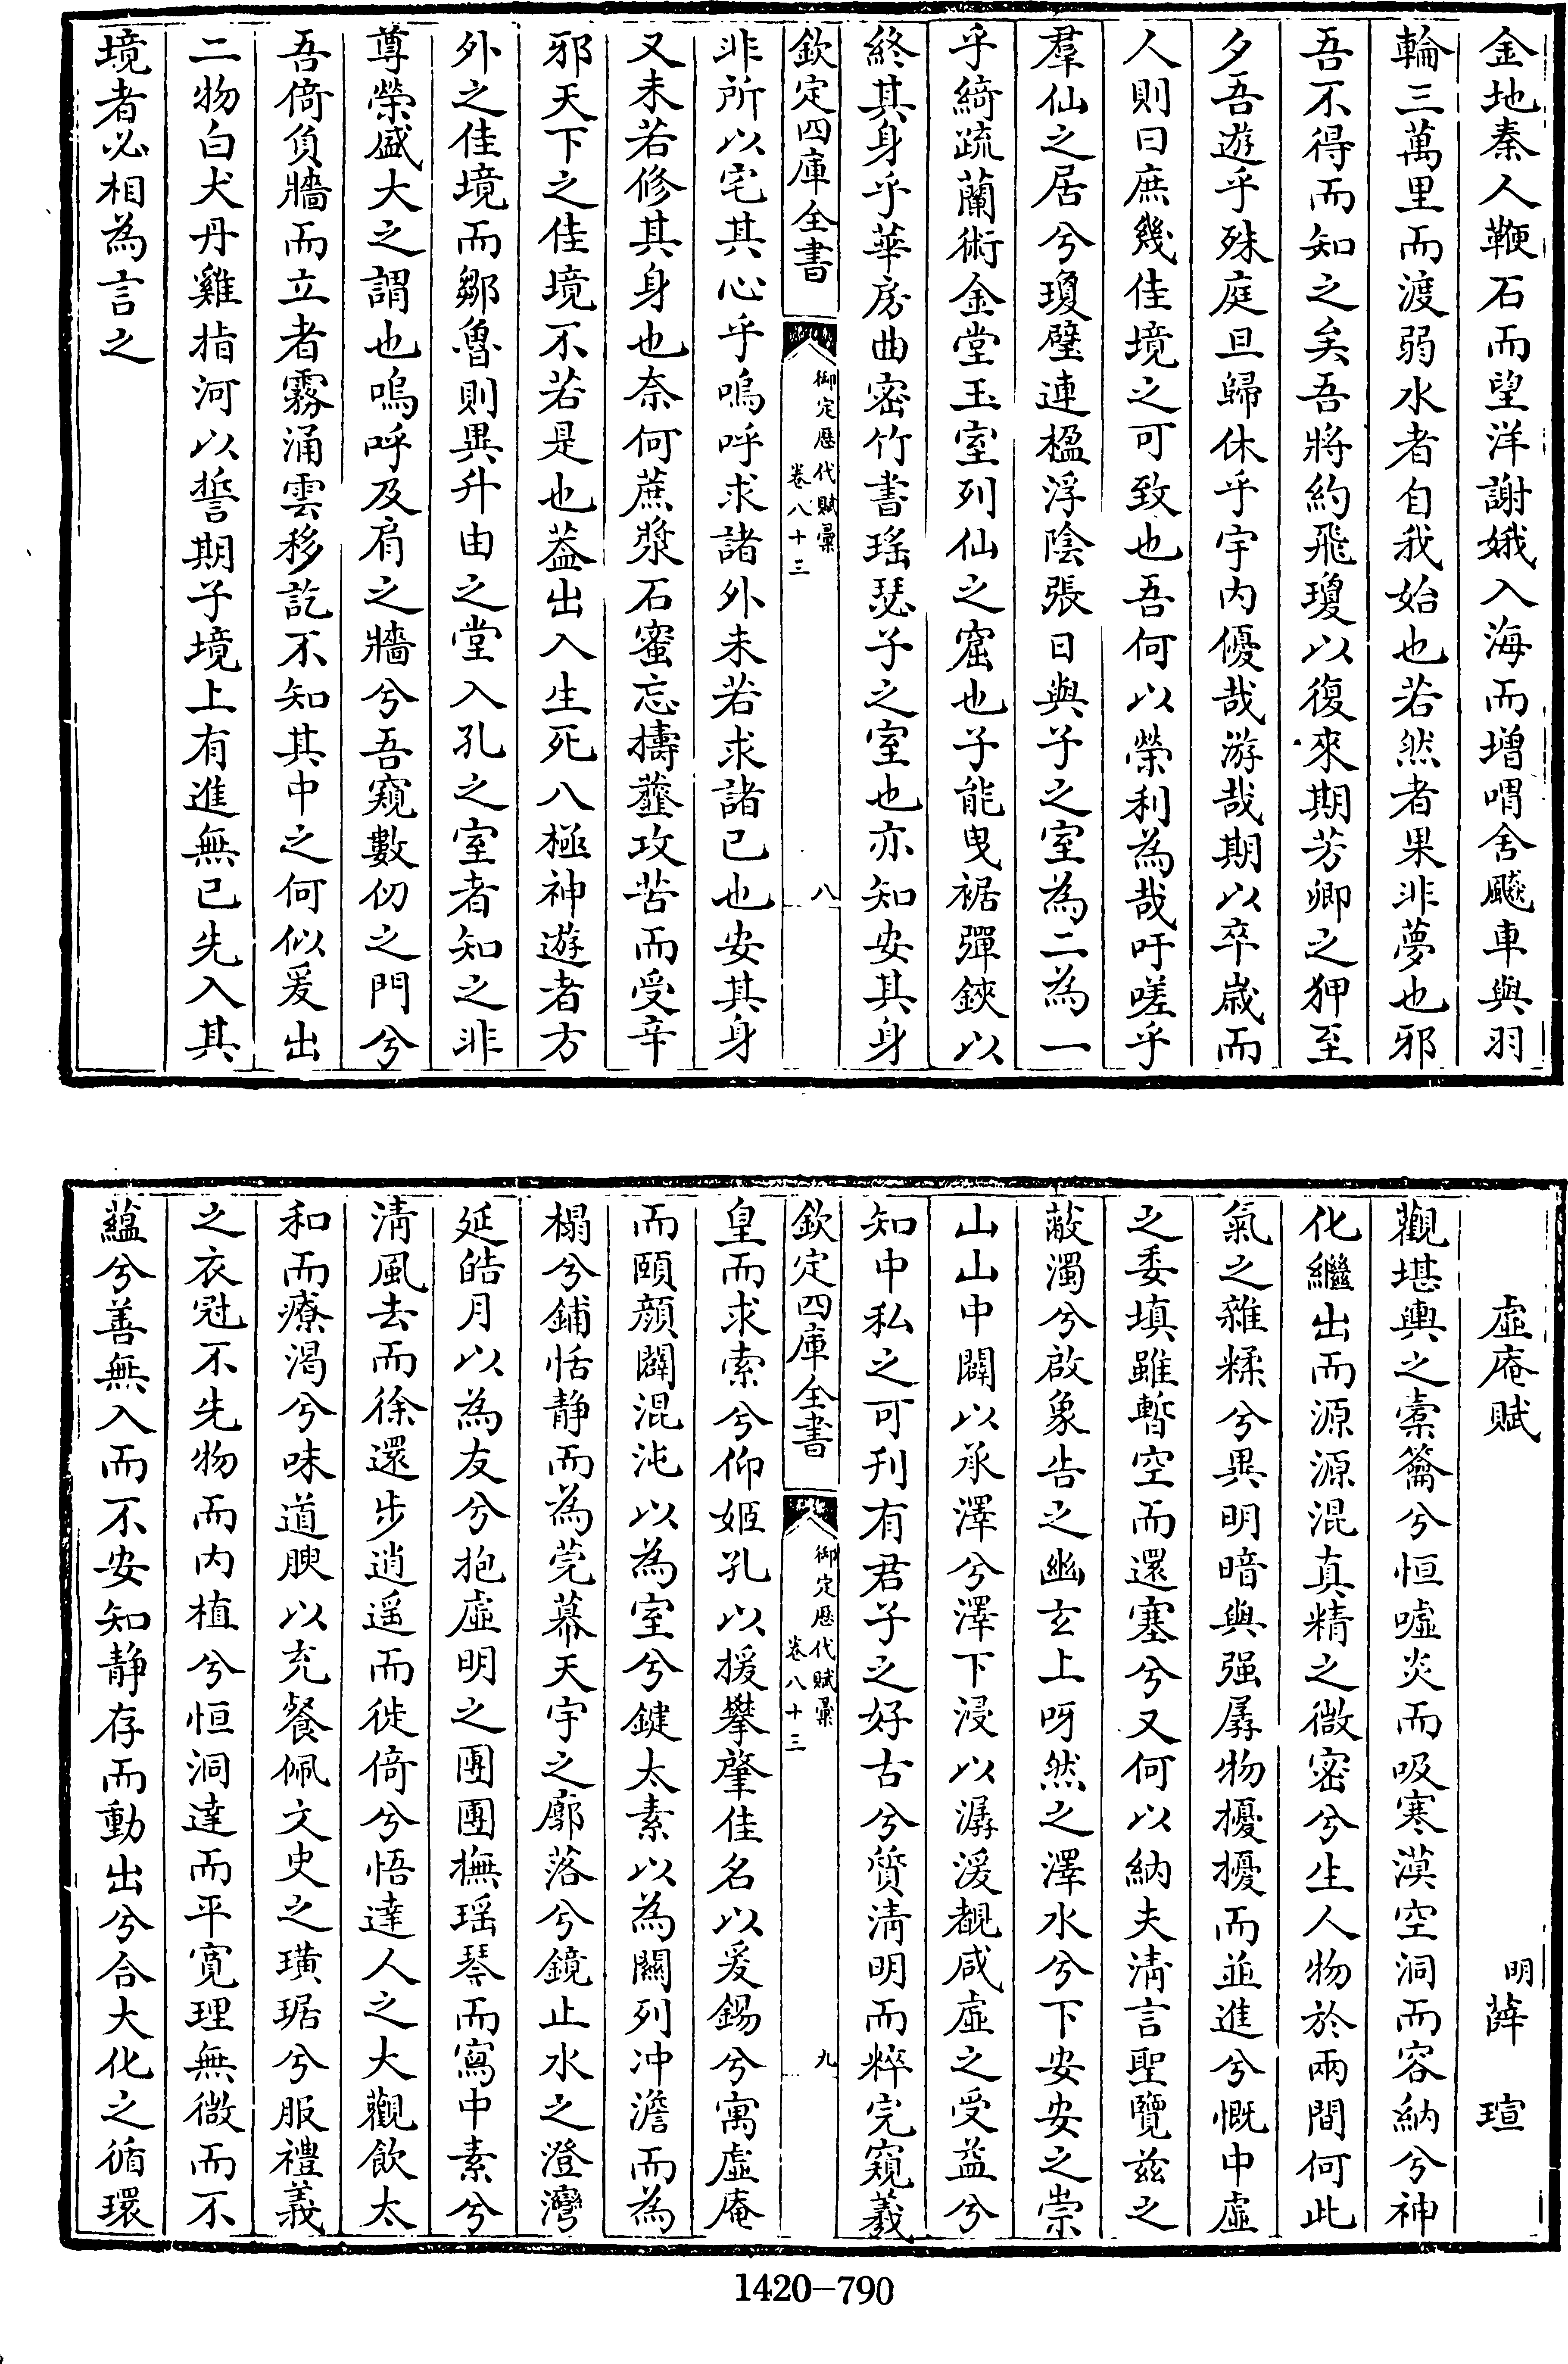 金地秦人鞭石而望洋謝娥入海而增喟舍飈車與羽
輪三萬里而渡弱水者自我始也若然者果非夢也邪
吾不得而知之矣吾將約飛瓊以復來期芳卿之狎至
夕吾遊乎殊庭旦歸休乎宇内優哉游哉期以卒歲而
人則曰庶幾佳境之可致也吾何以榮利為哉吁嗟乎
羣仙之居兮瓊璧連楹浮陰張日與子之室為二為一
乎綺疏蘭術金堂玉室列仙之窟也子能曳裾彈鋏以
終其身乎華房曲密竹書瑶瑟子之室也亦知安其身
欽定四庫全書
御定歷代賦彙
卷八十三
八
非所以宅其心乎嗚呼求諸外未若求諸已也安其身
又未若修其身也奈何蔗漿石蜜忘擣虀攻苦而受辛
邪天下之佳境不若是也葢出入生死八極神遊者方
外之佳境而鄒魯則異升由之堂入孔之室者知之非
尊榮盛大之謂也嗚呼及肩之牆兮吾窺數仞之門兮
吾倚負牆而立者霧涌雲移訖不知其中之何似爰出
二物白犬丹雞指河以誓期子境上有進無已先入其
境者必相為言之
虚庵賦
明薛瑄
觀堪輿之橐籥兮恒嘘炎而吸寒漠空洞而容納兮神
化繼出而源源混真精之微密兮生人物於兩間何此
氣之雜糅兮異明暗與强孱物擾擾而並進兮慨中虚
之委填雖暫空而還塞兮又何以納夫清言聖覽兹之
蔽濁兮啟象告之幽玄上呀然之澤水兮下安安之崇
山山中闢以承澤兮澤下浸以潺湲覩咸虚之受益兮
知中私之可刋有君子之好古兮質清明而粹完窺羲
欽定四庫全書
御定歷代賦彙
卷八十三
九
皇而求索兮仰姬孔以援攀肇佳名以爰錫兮寓虚庵
而頤顔闢混沌以為室兮鍵太素以為關列冲澹而為
榻兮鋪恬静而為莞幕天宇之廓落兮鏡止水之澄灣
延皓月以為友兮抱虚明之團團撫瑶琴而寫中素兮
清風去而徐還步逍遥而徙倚兮悟達人之大觀飲太
和而療渴兮味道腴以充餐佩文史之璜琚兮服禮義
之衣冠不先物而内植兮恒洞達而平寛理無微而不
藴兮善無入而不安知静存而動出兮合大化之循環
1420-790